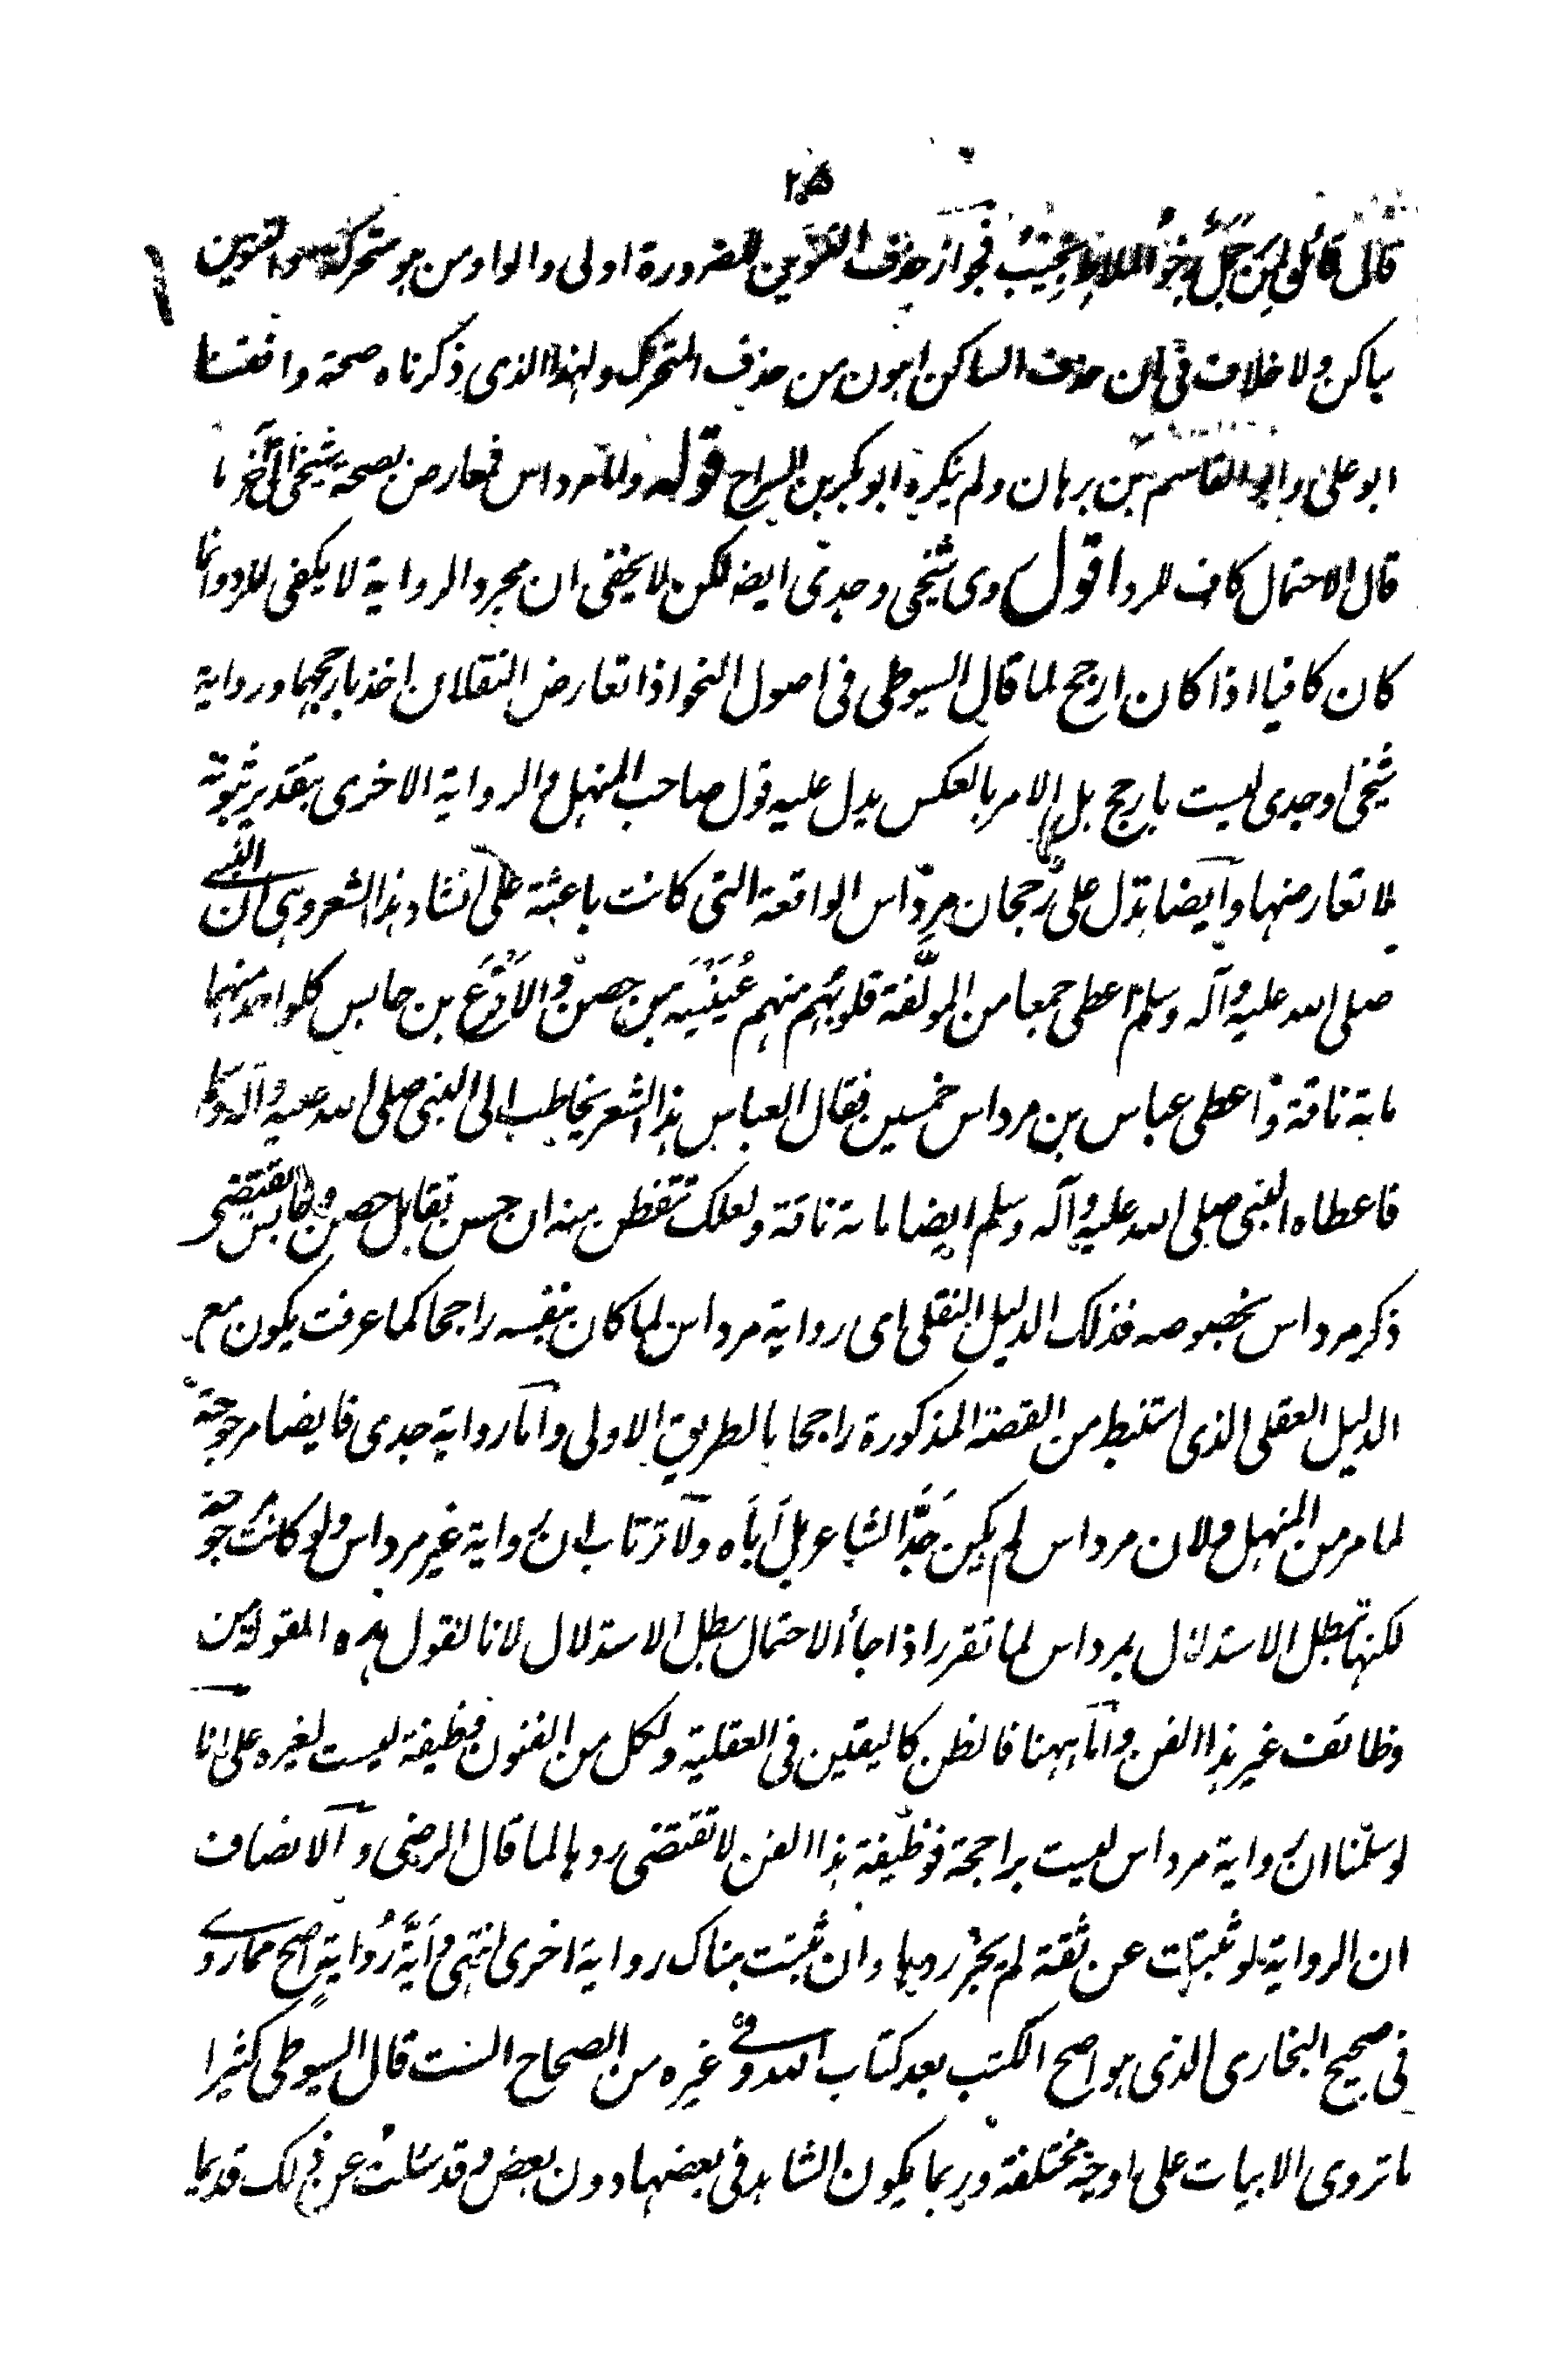 ٢٠٥
قال قائل لمن جمل رخو الملاط نجيب فجواز حذف التنوين للضرورة اولى والواو من هو متحركة والتنوين
ساكن ولا خلاف في ان حذف الساكن اهون من حذف المتحرك ولهذا الذى ذكرناه صحته وافقنا
ابو على وابو القاسم بن برهان ولم ينكره ابو بكر بن السراج قوله واما مرداس فمعارض بصحة شيخى الى آخر ما
قال الاحتمال كاف للرد اقول روى شيخى وجدى ايضا لكن لا يخفى ان مجرد الرواية لا يكفى للرد وانما
كان كافيا اذا كان ارجح لما قال السيوطى فى اصول النحو اذا تعارض النقلان اخذ بارجحهما ورواية
شيخى او جدى ليست بارجح بل الامر بالعكس يدل عليه قول صاحب المنهل والرواية الاخرى بتقدير ثبوته
لا تعارضها وايضا تدل على رجحان مرداس الواقعة التى كانت باعثة على انشاد هذا الشعر وهى ان النبى
صلى الله عليه وآله وسلم اعطى جمعا من المولّفة قلوبهم منهم عُيَيْنَه بن حصن والاَقْرَع بن حابس كلو احد منهما
مابة ناقة واعطى عباس بن مرداس خمسين فقال العباس هذا الشعر يخاطب الى النبى صلى الله عليه وآله وسلم
فاعطاه النبى صلى الله عليه وآله وسلم ايضا مابة ناقة ولعلك تتفطن منه ان حسن تقابل حصن وحابس يقتضى
ذكر مرداس بخصوصه فذلك الدليل النقلى اى رواية مرداس لما كان بنفسه راجحا كما عرفت يكون مع
الدليل العقلى الذى استنبط من القصة المذكورة راجحا بالطريق الاولى واما رواية جدى فايضا مرجوحة
لما مر من المنهل ولان مرداس لم يكن جَدَّ الشاعر بل اَباه ولا ترتاب ان رواية غير مرداس ولو كانت مرجوحة
لكنها تبطل الاستدلال بمرداس لما تقرر اذا جاء الاحتمال بطل الاستدلال لانا نقول هذه المقولة من
وظائف غير هذا الفن واما ههنا فالظن كاليقين فى العقلية ولكل من الفنون وظيفة ليست لغيره على انا
لو سلّمنا ان رواية مرداس ليست براجحة فوظيفة هذا الفن لا تقتضى ردها لما قال الرضى والانصاف
ان الرواية لو ثبتت عن ثقة لم يجز ردها وان ثبتت هناك رواية اخرى انتهى واَيَّةُ رُوايةٍ اصح مما روى
فى صحيح البخارى الذى هو اصح الكتب بعد كتاب الله وفى غيره من الصحاح الست قال السيوطى كثيرا
ما تروى الابيات على اوجه مختلفة وربما يكون الشاهد فى بعضها دون بعض وقد سئلت عن ذلك قديما